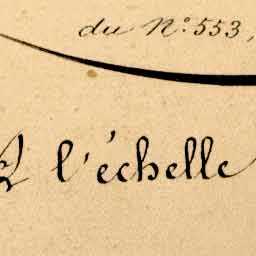 du N.º 553,
A l'échelle